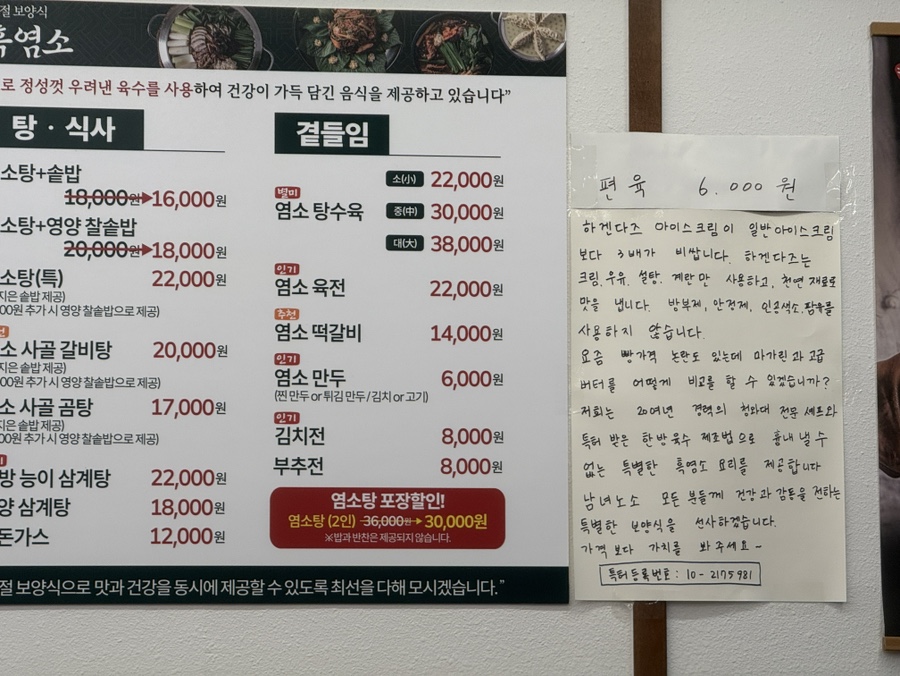 절 보양식
흑염소
로 정성껏 우려낸 육수를 사용하여 건강이 가득 담긴 음식을 제공하고 있습니다”
탕 · 식사
소탕+솥밥
18,000원 16,000원
소탕+영양 찰솥밥
20,000원 18,000원
소탕(특) 22,000원
지은 솥밥 제공)
00원 추가 시 영양 찰솥밥으로 제공)
소 사골 갈비탕 20,000원
지은 솥밥 제공)
00원 추가 시 영양 찰솥밥으로 제공)
소 사골 곰탕 17,000원
지은 솥밥 제공)
00원 추가 시 영양 찰솥밥으로 제공)
방 능이 삼계탕 22,000원
양 삼계탕 18,000원
돈가스 12,000원
곁들임
별미
염소 탕수육
소(小) 22,000원
중(中) 30,000원
대(大) 38,000원
인기
염소 육전 22,000원
추천
염소 떡갈비 14,000원
인기
염소 만두 6,000원
(찐 만두 or 튀김 만두 / 김치 or 고기)
인기
김치전 8,000원
부추전 8,000원
염소탕 포장할인!
염소탕 (2인) 36,000원 30,000원
※밥과 반찬은 제공되지 않습니다.
절 보양식으로 맛과 건강을 동시에 제공할 수 있도록 최선을 다해 모시겠습니다.”
편육 6.000원
하겐다즈 아이스크림이 일반아이스크림
보다 3배가 비쌉니다. 하겐다즈는
크림, 우유, 설탕, 계란만 사용하고, 천연 재료로
맛을 냅니다. 방부제, 안정제, 인공색소, 팜유를
사용하지 않습니다.
요즘 빵가격 논란도 있는데 마가린과 고급
버터를 어떻게 비교를 할 수 있겠습니까?
저희는 20여년 경력의 청와대 전문 셰프와
특허 받은 한방육수 제조법으로 흉내 낼 수
없는 특별한 흑염소 요리를 제공합니다
남녀노소 모든 분들께 건강과 감동을 전하는
특별한 보양식을 선사하겠습니다.
가격보다 가치를 봐주세요~
특허등록번호: 10-2175981